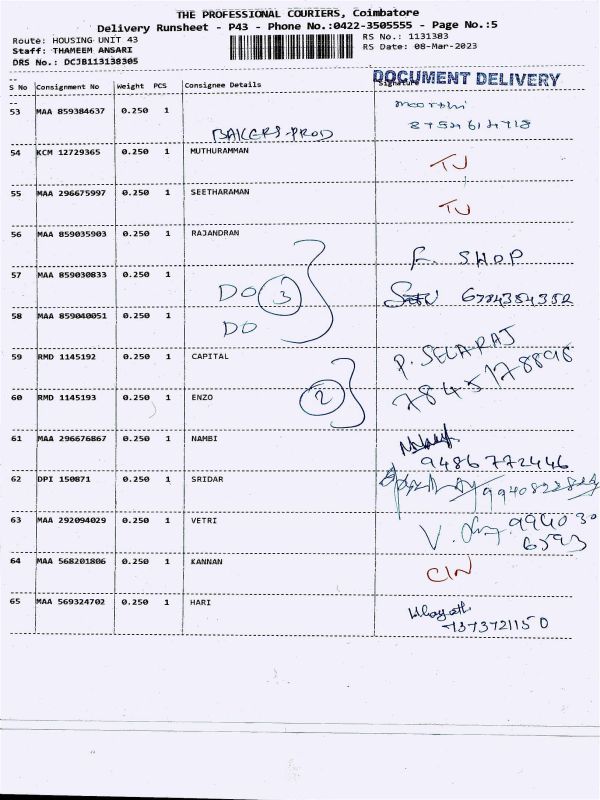 THE PROFESSIONAL COURIERS, Coimbatore
Delivery Runsheet - P43 - Phone No.:0422-3505555 - Page No.:5
Route: HOUSING UNIT 43
Staff: THAMEEM ANSARI
DRS No.: DCJB113138305
RS No.: 1131383
RS Date: 08-Mar-2023
DOCUMENT DELIVERY
S No Consignment No Weight PCS Consignee Details Signature
53 MAA 859384637 0.250 1 BAKERS PROD moorthi
8754614718
54 KCM 12729365 0.250 1 MUTHURAMMAN TJ
55 MAA 296675997 0.250 1 SEETHARAMAN TJ
56 MAA 859035903 0.250 1 RAJANDRAN SHOP
57 MAA 859030833 0.250 1 DO 3 6774354352
58 MAA 859040051 0.250 1 DO
59 RMD 1145192 0.250 1 CAPITAL P. SELARAJ
60 RMD 1145193 0.250 1 ENZO 2 7845178896
61 MAA 296676867 0.250 1 NAMBI
9486772446
62 DPI 150871 0.250 1 SRIDAR
63 MAA 292094029 0.250 1 VETRI V. 994030
6593
64 MAA 568201806 0.250 1 KANNAN CIN
65 MAA 569324702 0.250 1 HARI
7373721150